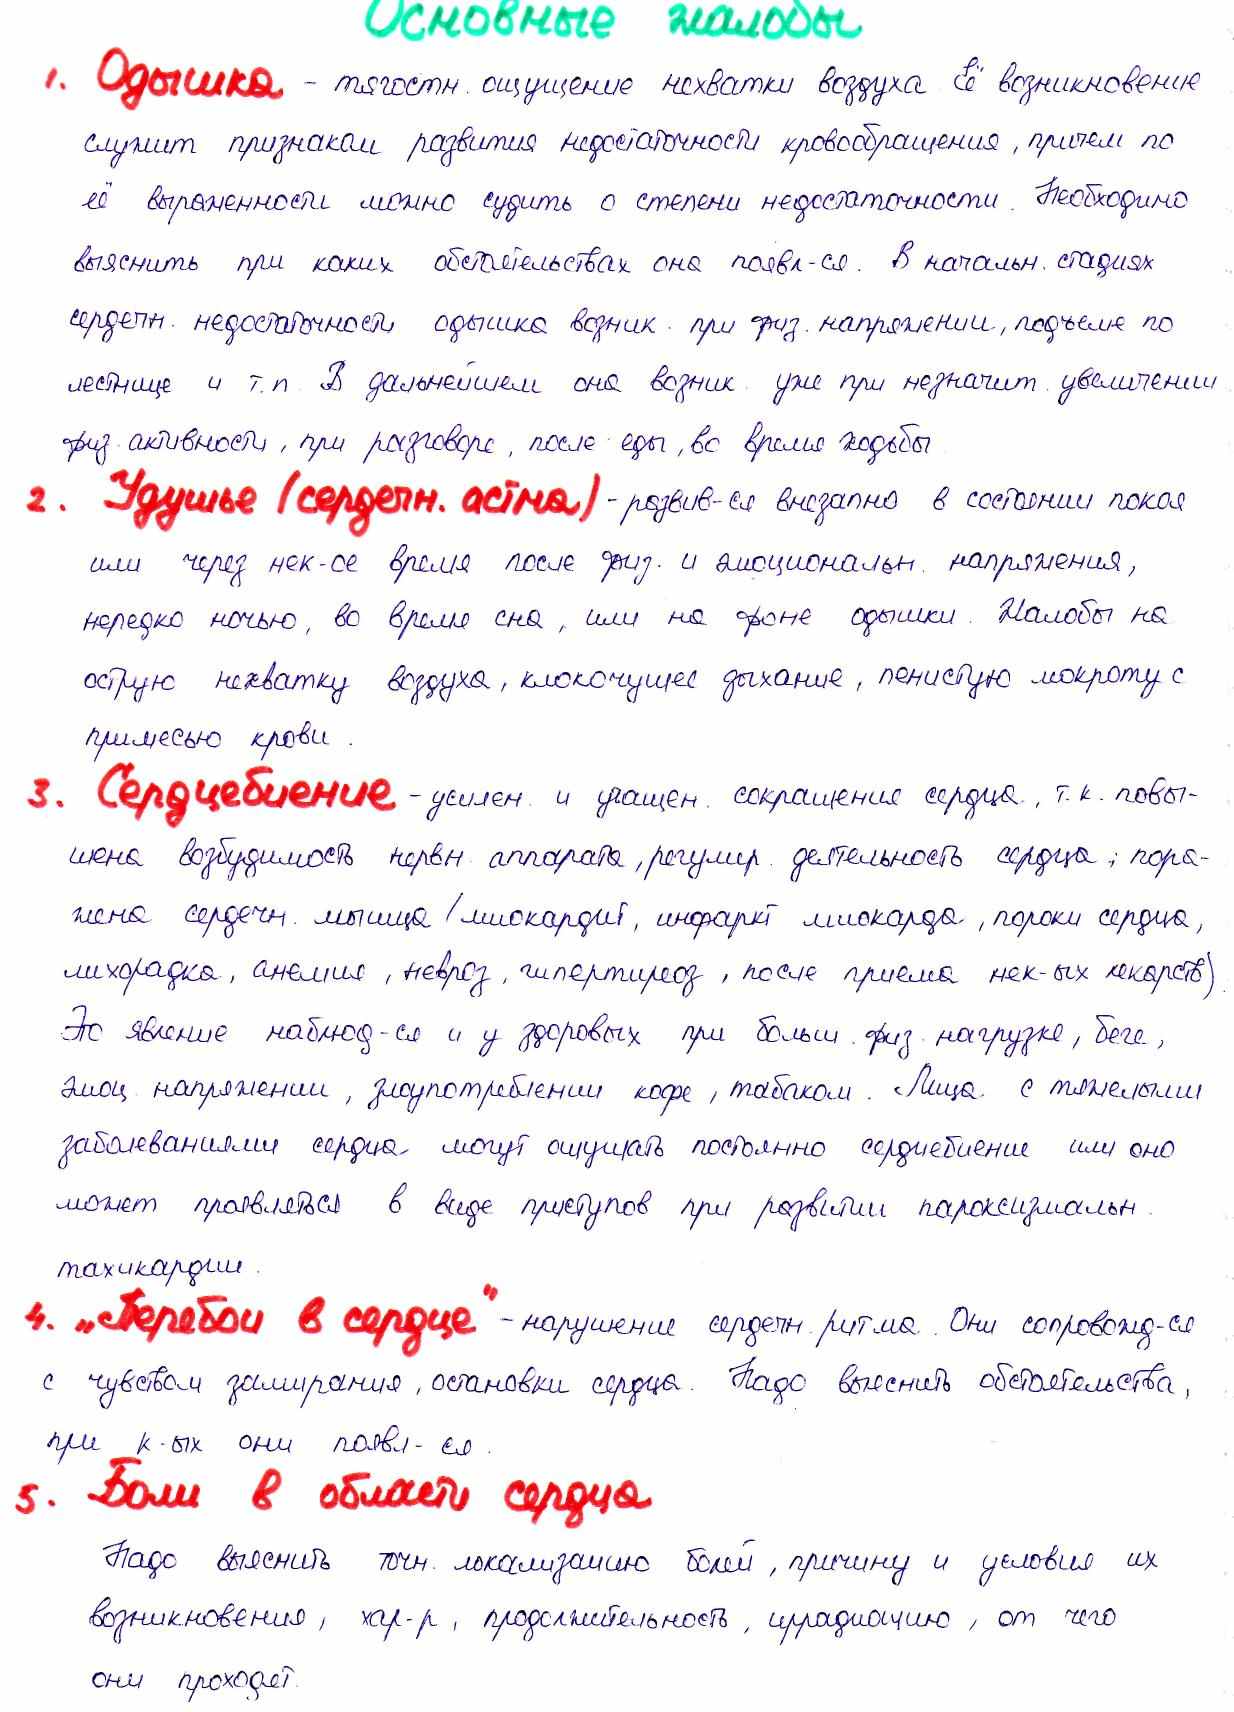 Основные жалобы
1. Одышка - тягостн. ощущение нехватки воздуха. Её возникновение
служит признаком развития недостаточности кровообращения, причем по
её выраженности можно судить о степени недостаточности. Необходимо
выяснить при каких обстоятельствах она появл-ся. В начальн. стадиях
сердечн. недостаточности одышка возник. при физ. напряжении, подъеме по
лестнице и т.п. В дальнейшем она возник. уже при незначит. увеличении
физ. активности, при разговоре, после еды, во время ходьбы
2. Удушье (сердечн. астма) - развив-ся внезапно в состоянии покоя
или через нек-ое время после физ. и эмоциональн. напряжения,
нередко ночью, во время сна, или на фоне одышки. Жалобы на
острую нехватку воздуха, клокочущее дыхание, пенистую мокроту с
примесью крови.
3. Сердцебиение - усилен. и учащен. сокращение сердца, т.к. повы-
шена возбудимость нервн. аппарата, регулир. деятельность сердца; пора-
жена сердечн. мышца (миокардит, инфаркт миокарда, пороки сердца,
лихорадка, анемия, невроз, гипертиреоз, после приема нек-ых лекарств).
Это явление наблюд-ся и у здоровых при больш. физ. нагрузке, беге,
эмоц. напряжении, злоупотреблении кофе, табаком. Лица с тяжелыми
заболеваниями сердца могут ощущать постоянно сердцебиение или оно
может проявляться в виде приступов при развитии пароксизмальн.
тахикардии.
4. „Перебои в сердце" - нарушение сердечн. ритма. Они сопровожд-ся
с чувством замирания, остановки сердца. Надо выяснить обстоятельства,
при к-ых они появл-ся.
5. Боли в области сердца
Надо выяснить точн. локализацию болей, причину и условия их
возникновения, хар-р, продолжительность, иррадиацию, от чего
они проходят.